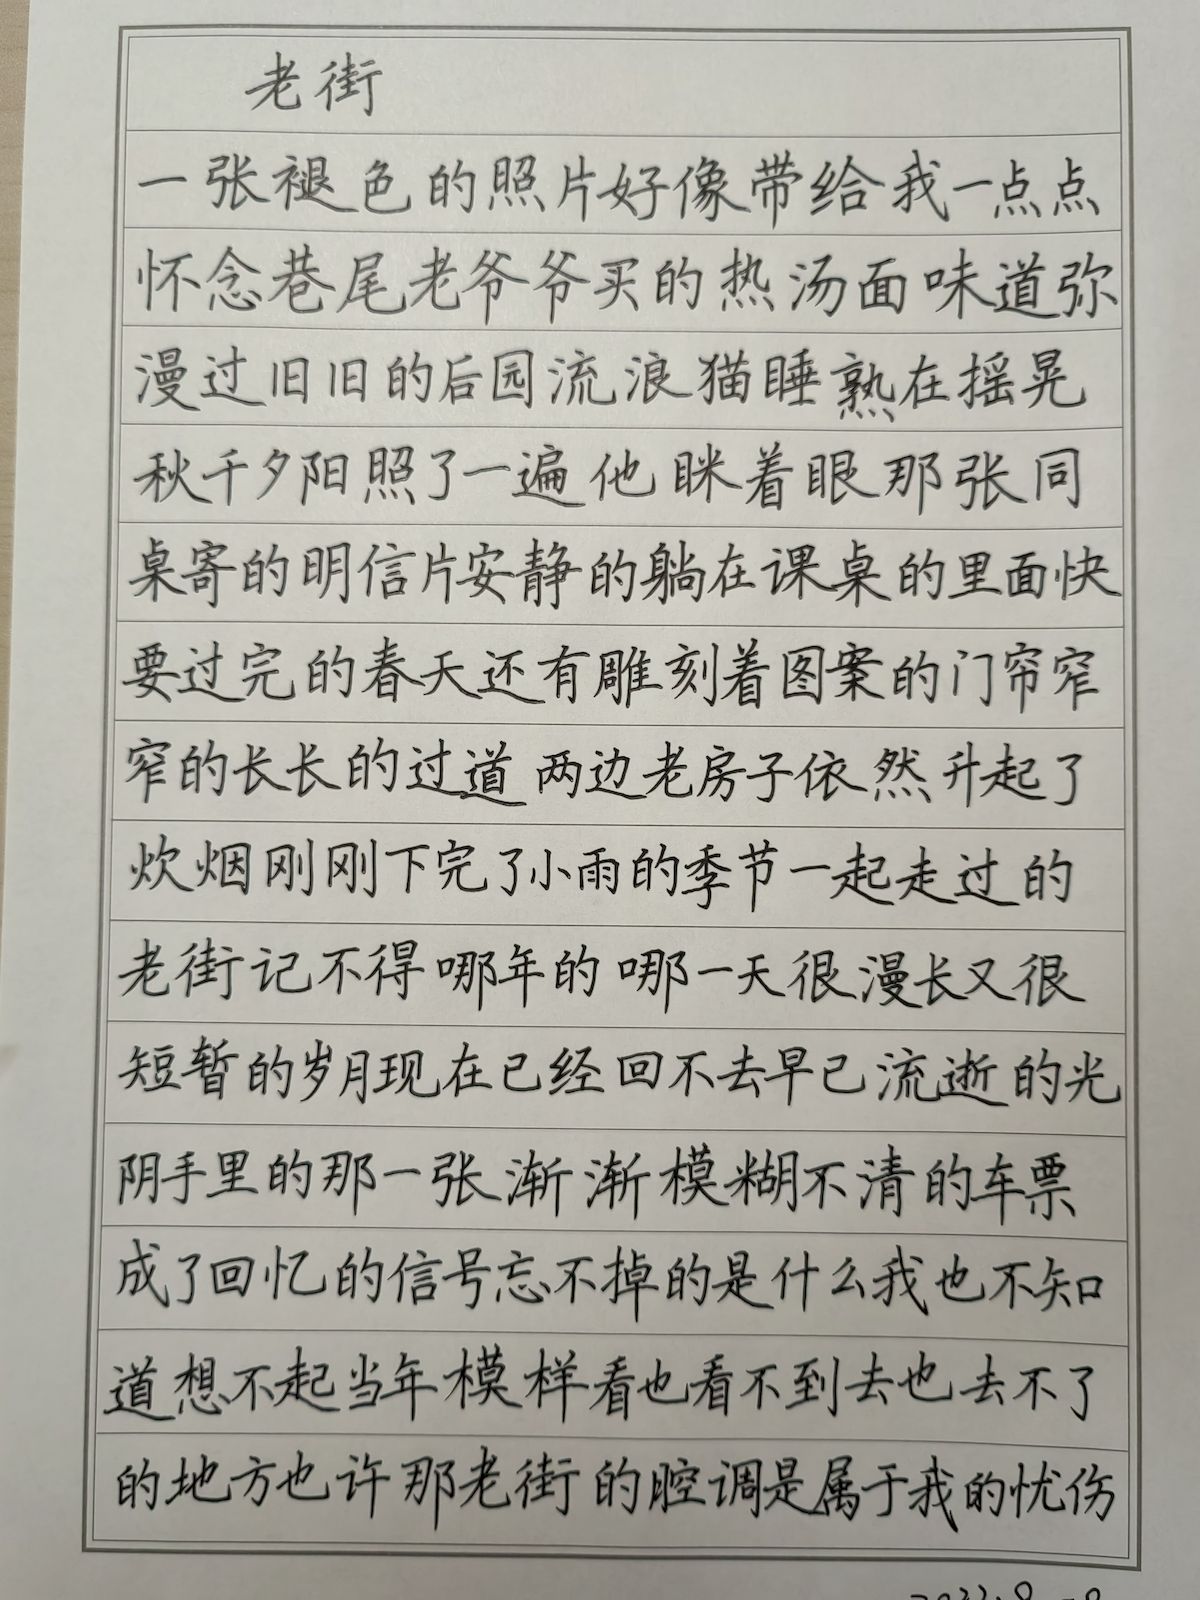 老街
一张褪色的照片好像带给我一点点
怀念巷尾老爷爷买的热汤面味道弥
漫过旧旧的后园流浪猫睡熟在摇晃
秋千夕阳照了一遍他眯着眼那张同
桌寄的明信片安静的躺在课桌的里面快
要过完的春天还有雕刻着图案的门帘窄
窄的长长的过道两边老房子依然升起了
炊烟刚刚下完了小雨的季节一起走过的
老街记不得哪年的哪一天很漫长又很
短暂的岁月现在已经回不去早已流逝的光
阴手里的那一张渐渐模糊不清的车票
成了回忆的信号忘不掉的是什么我也不知
道想不起当年模样看也看不到去也去不了
的地方也许那老街的腔调是属于我的忧伤